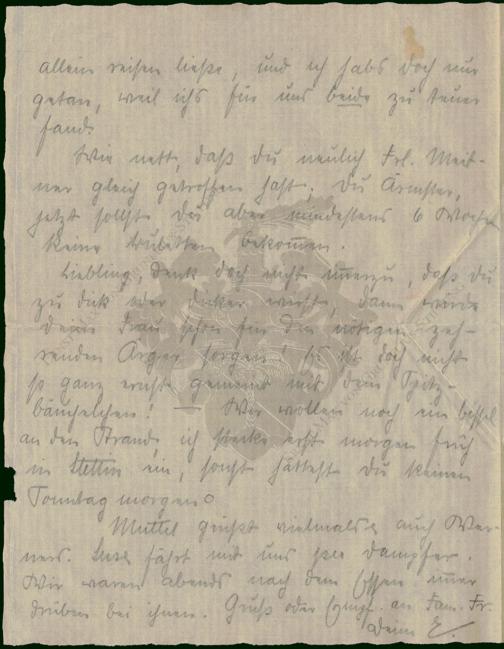 allein reisen ließe, und ich habs doch nur
getan, weil ichs für uns beide zu teuer
fand.
Wie nett, daß Du neulich Frl. Meit-
ner gleich getroffen hast. Du Ärmster,
jetzt sollst Du aber mindestens 6 Wochen
keine bekommen.
Liebling, denk doch nicht immerzu, daß Du
zu dick oder dicker wirst, dann würde
deine Frau schon für den nötigen zeh-
renden Ärger sorgen! Es ist doch nicht
so ganz ernst gemeint mit dem Spitz-
bäuchelchen! — Wir wollen noch ein bissel
an den Strand, ich stecke erst morgen früh
in Stettin ein, sonst hättest Du keinen
Sonntag morgen
Muttel grüßt vielmals, auch Wer-
ners. fährt mit uns per Dampfer.
Wir waren abends nach dem Essen immer
drüben bei ihnen. Gruß oder Empf. an Fam. Fr.
Deine E.